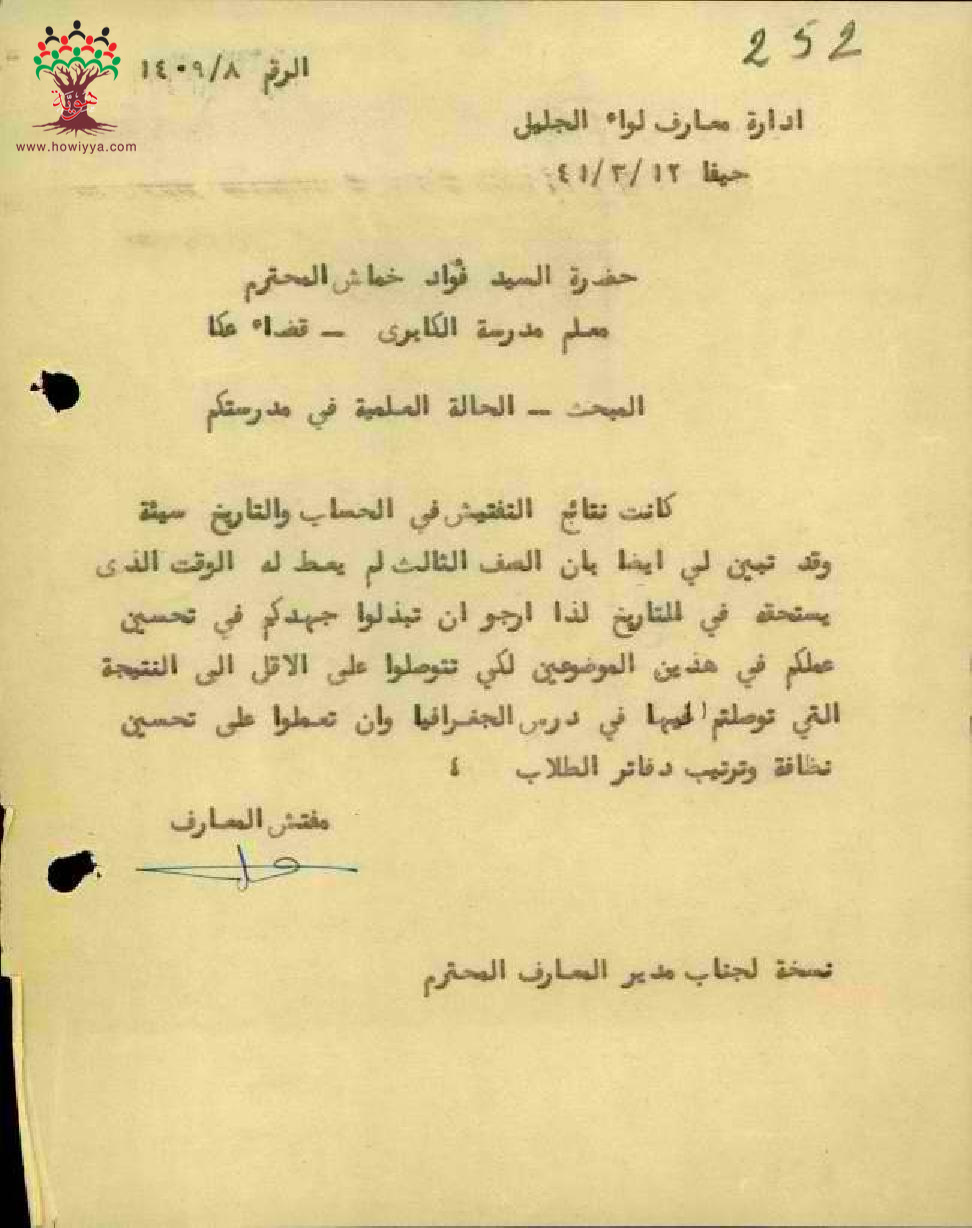 252
هوية
www.howiyya.com
الرقم ١٤٠٩/٨
ادارة معارف لواء الجليل
حيفا ١٢/٣/٤١
حضرة السيد فؤاد خماش المحترم
معلم مدرسة الكابرى — قضاء عكا
المبحث — الحالة العلمية في مدرستكم
كانت نتائج التفتيش في الحساب والتاريخ سيئة
وقد تبين لي ايضا بان الصف الثالث لم يعط له الوقت الذى
يستحقه في التاريخ لذا ارجو ان تبذلوا جهدكم في تحسين
عملكم في هذين الموضوعين لكي تتوصلوا على الاقل الى النتيجة
التي توصلتم اليها في درس الجغرافيا وان تعملوا على تحسين
نظافة وترتيب دفاتر الطلاب ٤
مفتش المعارف
نسخة لجناب مدير المعارف المحترم